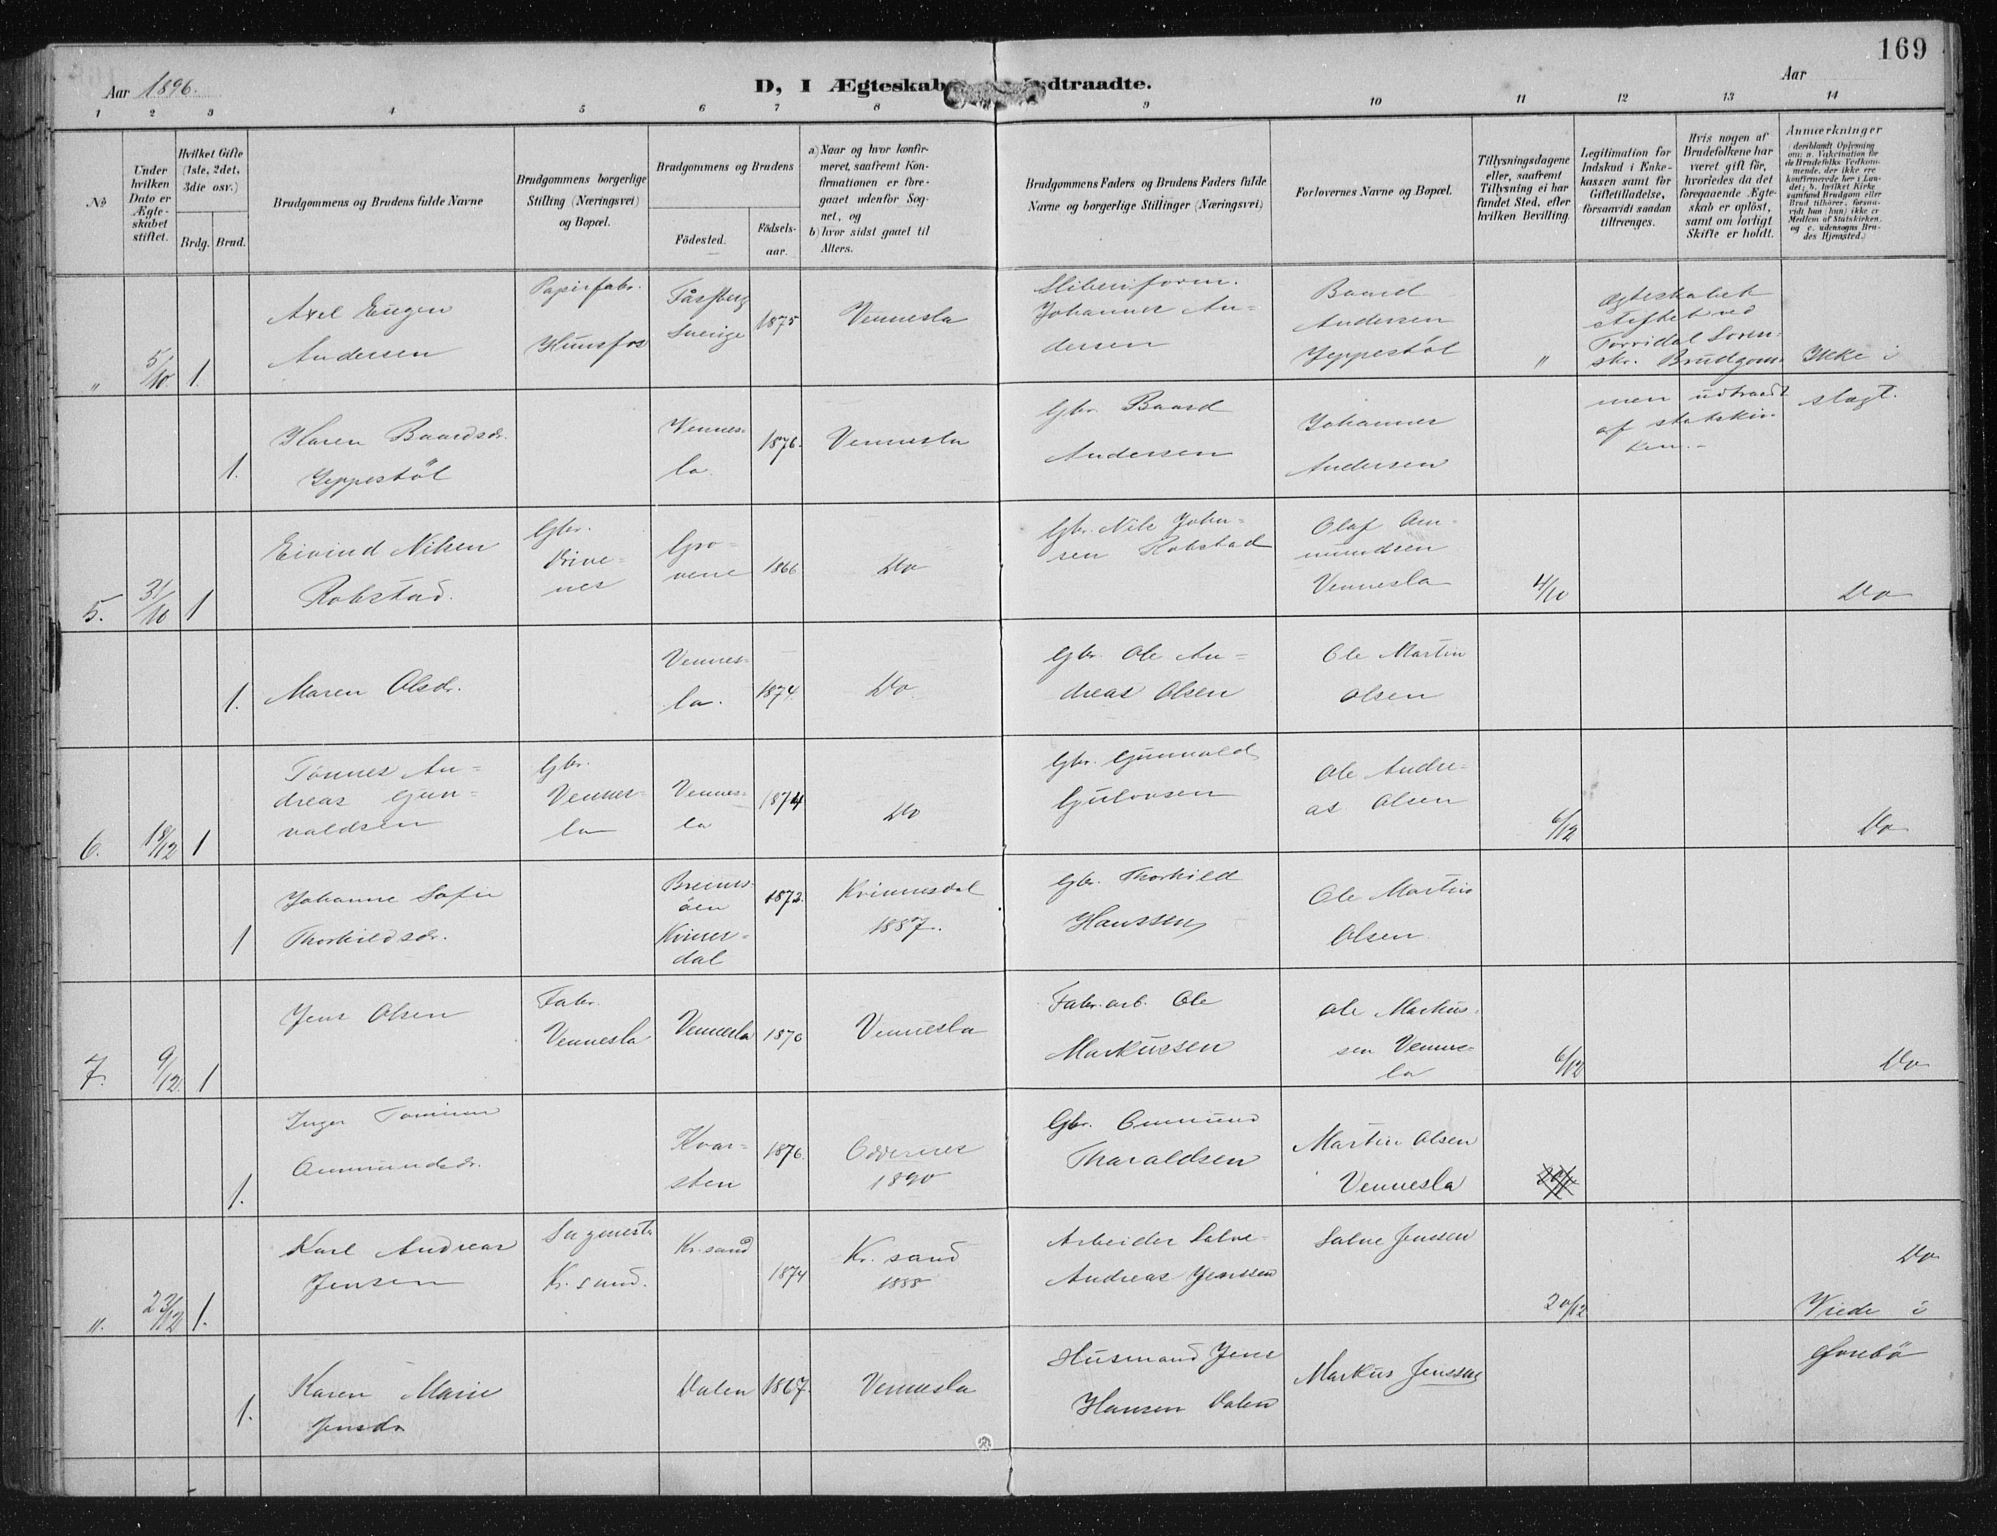 169
Aar 1896.
D, I Ægteskab indtraadte.
Aar
1 2 3 4 5 6 7 8 9 10 11 12 13 14
No
Under hvilken Dato er Ægteskabet stiftet.
Hvilket Gifte (1ste, 2det, 3die osv.)
Brdg. Brud.
Brudgommens og Brudens fulde Navne
Brudgommens borgerlige Stilling (Næringsvei) og Bopæl.
Brudgommens og Brudens
Fødested.
Fødselsaar.
a) Naar og hvor konfirmeret, saafremt Konfirmationen er foregaaet udenfor Sognet, og
b) hvor sidst gaaet til Alters.
Brudgommens Faders og Brudens Faders fulde Navne og borgerlige Stillinger (Næringsvei)
Forlovernes Navne og Bopæl.
Tillysningsdagene eller, saafremt Tillysning ei har fundet Sted, efter hvilken Bevilling.
Legitimation for Indskud i Enkekassen samt for Giftetilladelse, forsaavidt saadan tiltrænges.
Hvis nogen af Brudefolkene har været gift før, hvorledes da det foregaaende Ægteskab er opløst, samt om lovligt Skifte er holdt.
Anmærkninger
(deriblandt Oplysning om: a. Vakcination for de Brudefolks Vedkommende, der ikke ere konfirmerede her i Landet; b. hvilket Kirkesamfund Brudgom eller Brud tilhører, forsaavidt han (hun) ikke er Medlem af Statskirken, og c. udensogns Brudes Hjemsted.)
" 5/10 1.
Axel Eugen
Andersen
Papirfabr.
Hunsfos
Sverige
1875
Vennesla
Johannes An-
dersen
Baard
Andersen
Jeppestöl
"
Ægteskabet
stiftet ved
Torridal Soren-
skr. Brudgom-
men udtraadt
af statskir-
ken.-
Ikke i
slægt.
1.
Karen Baardsdr.
Jeppestöl
Vennes-
la.
1876.
Vennesla
Gbr. Baard
Andersen
Johannes
Andersen
5. 31/10 1
Eivind Nilsen
Robstad.
Gbr.
Drive-
nes
Gro-
vene
1866
Do
Gbr. Nils John-
sen Robstad
Olaf Om-
mundsen
Vennesla
4/10
Do
1.
Maren Olsdr.
Vennes-
la.
1874.
Do.
Gbr. Ole An-
dreas Olsen
Ole Martin
Olsen
6. 18/12 1
Tönnes An-
dreas Gun-
valdsen
Gbr.
Vennes-
la
Vennes-
la
1874
Do
Gbr. Gunvald
Gulovsen
Ole Andre-
as Olsen
6/12
Do
1
Johanne Sofie
Thorkildsdr.
Kvines-
dal
1873.
Kvinnesdal
1887.
Gbr. Thorkild
Hanssen
Ole Martin
Olsen
7. 9/12. 1
Jens Olsen
Fabr.
Vennesla
Vennesla
1870
Vennesla
Fabr. arb. Ole
Markussen
Ole Markus-
sen Vennes-
la
6/12
Do
1.
Inger Tomine
Ommundsdr.
Kvar-
sten
1876.
Oddernes
1890
Gbr. Ommund
Tharaldsen
Martin Olsen
Vennesla
". 23/12 1.
Karl Andreas
Jensen
Sagmest.
Kr. sand.
Kr. sand
1874
Kr. sand
1888
Arbeider Salve
Andreas Jenssen
Salve Jenssen
20/12
Do
Viede i
Øvrebö
1.
Karen Marie
Jensdr
Dalen
1867.
Vennesla
Husmand Jens
Hansen Dalen
Markus Jenssen